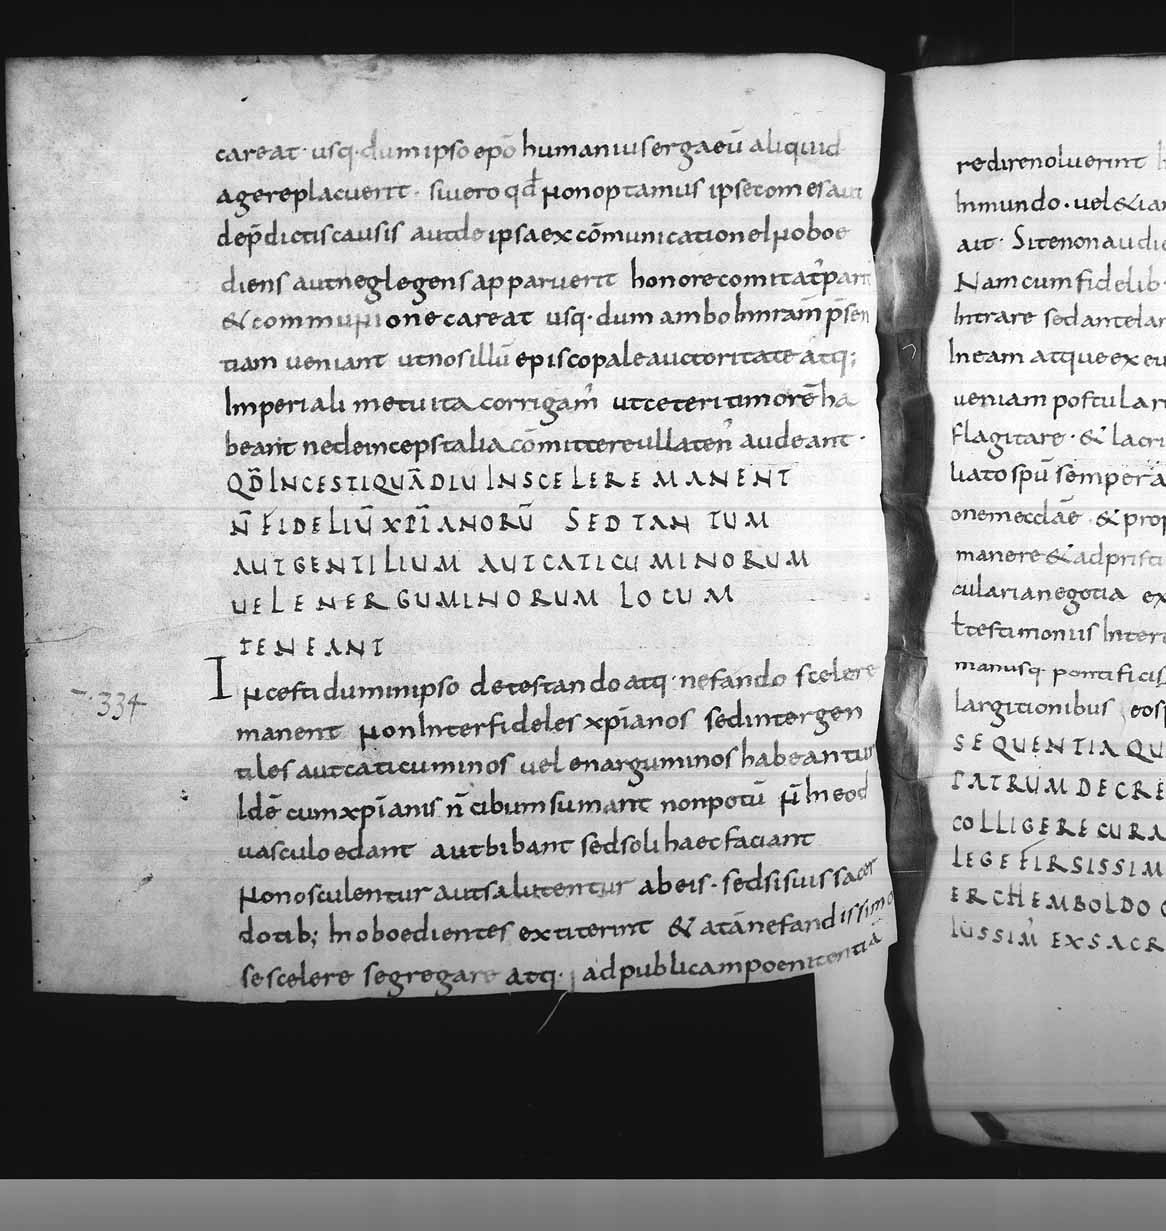 careat· usq·dum ipso epō humanius ergaeū aliquid
agere placuerit· Si uero qđ non optamus ipse comes aut
dep̄dictis causis aut de ipsa excōmunicatione l noboe
diens aut neglegens apparuerit honore comitat᾽ pari
& communione careat usq·dum ambo In nram̄ p̄sen
tiam ueniant ut nos illū episcopale auctoritate atq;
Imperiali metu ita corrigam᾽ ut ceteri timorē ha
beant ne deinceps talia cōmittere ullaten᾽ audeant·
QD̄ INCESTI QUĀDIU IN SCELERE MANENT
N̄ FIDELIŪ XP̄IANORŪ SED TANTUM
AUT GENTILIUM AUT CATICUMINORUM
UEL ENERGUMINORUM LOCUM
TENEANT
Incesti dum in ipso detestando atq· nefando scelere
manent non Inter fideles xp̄ianos sed inter gen
tiles aut caticuminos uel enarguminos habeantur
Idē cum xp̄ianis n̄ cibum sumant non potū n̄ In eod
uasculo edant aut bibant sed soli haec faciant
non osculentur aut salutentur ab eis· sed si suis sacer
dotib; Inoboedientes extiterint & a tā nefandissimo
se scelere segregare atq· ad publicam poenitentiā
-·334
redire noluerint
Inmundo· uel & iam
ait· Si te non audie
Nam cum fidelib·
Intrare sed ante Ian
Ineam atque ex eu
ueniam postulan
flagitare· & lacri
liato spū semper
onem ecclāe· & prop
manere & ad pristi
cularia negotia ex
testimoniis Inter
manusq· pontificis
largitionibus eos
SEQUENTIA QU
PATRUM DECRE
COLLIGERE CURA
LEGE FIRSISSIM
ERCHEMBOLDO
IUSSIM᾽ EX SACR